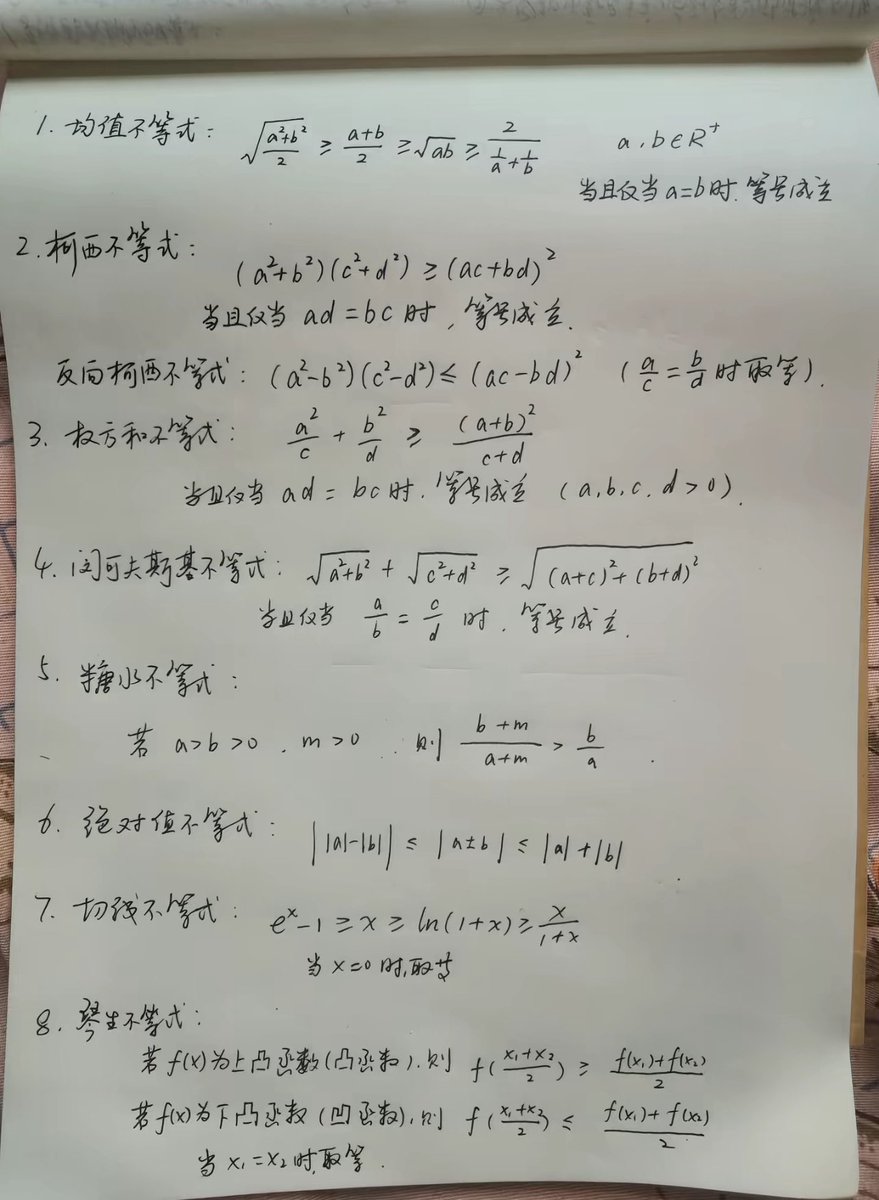 1. 均值不等式: √((a²+b²)/2) ≥ (a+b)/2 ≥ √ab ≥ 2/(1/a + 1/b)    a,b∈R⁺
当且仅当 a=b时.等号成立
2. 柯西不等式:
(a²+b²)(c²+d²) ≥ (ac+bd)²
当且仅当 ad=bc时,等号成立.
反向柯西不等式: (a²-b²)(c²-d²) ≤ (ac-bd)² (a/c = b/d 时取等).
3. 权方和不等式: a²/c + b²/d ≥ (a+b)²/(c+d)
当且仅当 ad=bc时.等号成立 (a,b,c,d>0).
4. 闵可夫斯基不等式: √(a²+b²) + √(c²+d²) ≥ √((a+c)²+(b+d)²)
当且仅当 a/b = c/d 时.等号成立.
5. 糖水不等式:
若 a>b>0 . m>0 . 则 (b+m)/(a+m) > b/a .
6. 绝对值不等式: ||a|-|b|| ≤ |a±b| ≤ |a|+|b| .
7. 切线不等式: eˣ-1 ≥ x ≥ ln(1+x) ≥ x/(1+x)
当 x=0时,取等
8. 琴生不等式:
若f(x)为上凸函数(凸函数).则 f((x₁+x₂)/2) ≥ (f(x₁)+f(x₂))/2
若f(x)为下凸函数(凹函数).则 f((x₁+x₂)/2) ≤ (f(x₁)+f(x₂))/2
当 x₁=x₂时,取等.